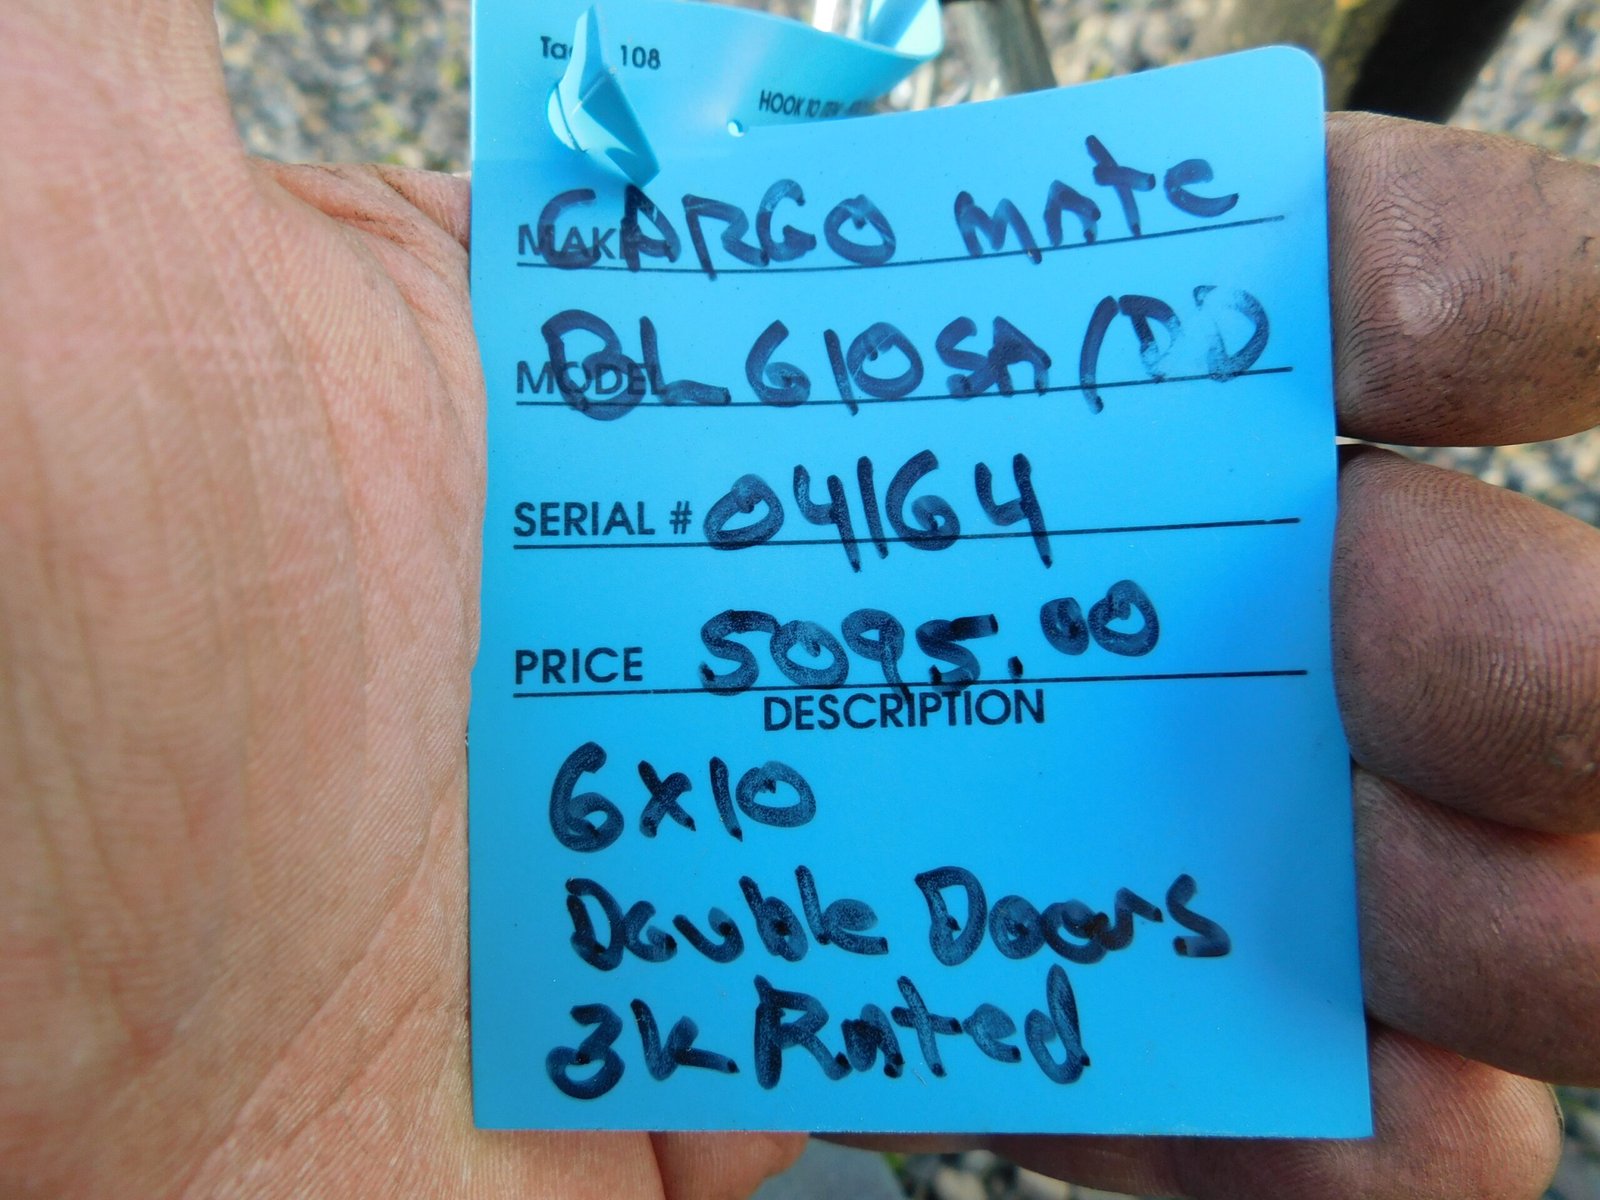 Tag 108
HOOK TO ITEM
MAKE CARGO MATE
MODEL BL610SA (DD
SERIAL # 04164
PRICE 5095.00
DESCRIPTION
6x10
Double Doors
3K Rated